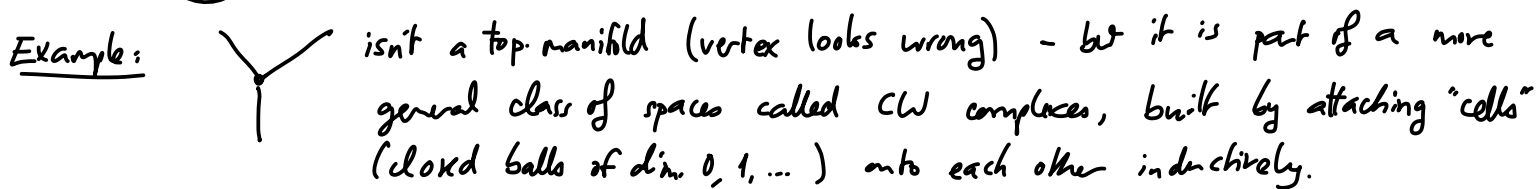 Example: isn't a top. manifold (vertex looks wrong) - but it is part of a more
general class of spaces called CW complexes, built by attaching "cells"
(closed balls of dim. 0, 1, ... ) onto each other inductively.